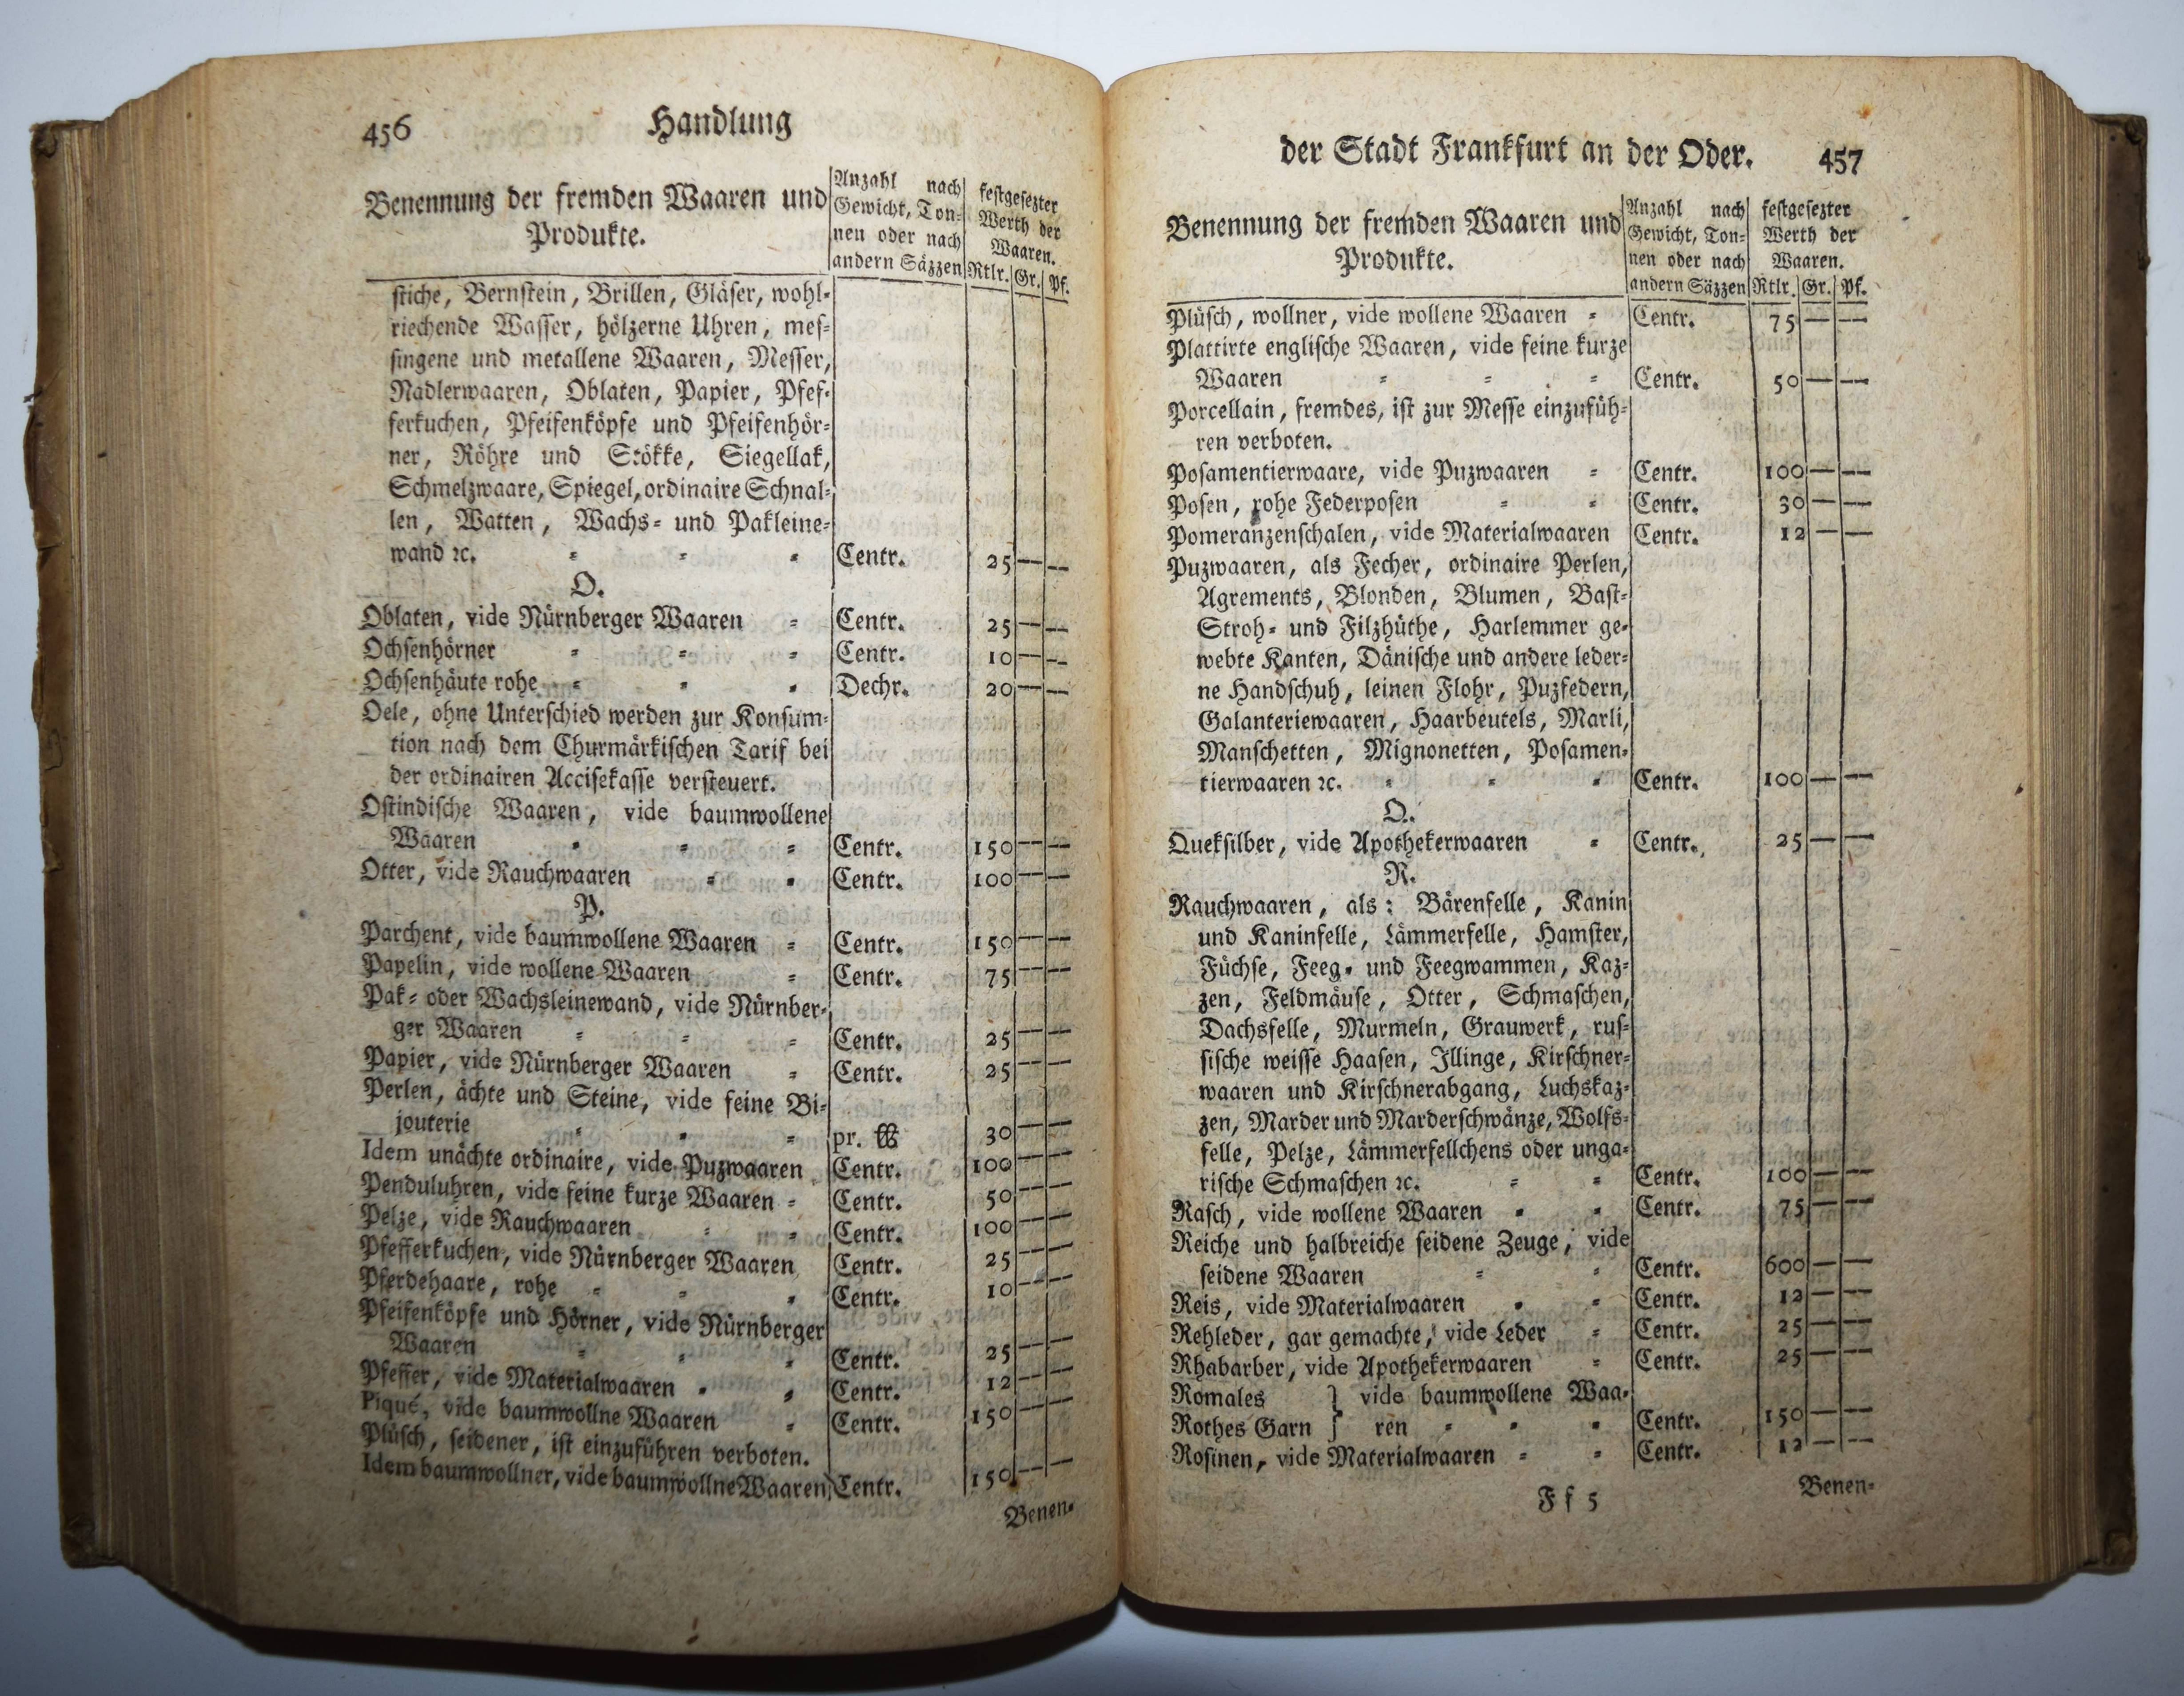 456
Handlung
Benennung der fremden Waaren und
Produkte.
Anzahl nach
Gewicht, Ton-
nen oder nach
andern Säzzen
festgesezter
Werth der
Waaren.
Rtlr. Gr. Pf.
stiche, Bernstein, Brillen, Gläser, wohl-
riechende Wasser, hölzerne Uhren, mes-
singene und metallene Waaren, Messer,
Nadlerwaaren, Oblaten, Papier, Pfef-
ferkuchen, Pfeifenköpfe und Pfeifenhör-
ner, Röhre und Stökke, Siegellak,
Schmelzwaare, Spiegel, ordinaire Schnal-
len, Watten, Wachs- und Pakleine-
wand ꝛc. - - - Centr. 25 — —
O.
Oblaten, vide Nürnberger Waaren - Centr. 25 — —
Ochsenhörner - - - Centr. 10 — —
Ochsenhäute rohe - - - Dechr. 20 — —
Oele, ohne Unterschied werden zur Konsum-
tion nach dem Churmärkischen Tarif bei
der ordinairen Accisekasse versteuert.
Ostindische Waaren, vide baumwollene
Waaren - - - Centr. 150 — —
Otter, vide Rauchwaaren - - Centr. 100 — —
P.
Parchent, vide baumwollene Waaren - Centr. 150 — —
Papelin, vide wollene Waaren - Centr. 75 — —
Pak- oder Wachsleinewand, vide Nürnber-
ger Waaren - - - Centr. 25 — —
Papier, vide Nürnberger Waaren - Centr. 25 — —
Perlen, ächte und Steine, vide feine Bi-
jouterie - - - pr. ℔ 30 — —
Idem unächte ordinaire, vide Puzwaaren Centr. 100 — —
Penduluhren, vide feine kurze Waaren - Centr. 50 — —
Pelze, vide Rauchwaaren - - Centr. 100 — —
Pfefferkuchen, vide Nürnberger Waaren Centr. 25 — —
Pferdehaare, rohe - - - Centr. 10 — —
Pfeifenköpfe und Hörner, vide Nürnberger
Waaren - - - Centr. 25 — —
Pfeffer, vide Materialwaaren - - Centr. 12 — —
Piqué, vide baumwollne Waaren - Centr. 150 — —
Plüsch, seidener, ist einzuführen verboten.
Idem baumwollner, vide baumwollne Waaren Centr. 150 — —
Benen-
der Stadt Frankfurt an der Oder. 457
Benennung der fremden Waaren und
Produkte.
Anzahl nach
Gewicht, Ton-
nen oder nach
andern Säzzen
festgesezter
Werth der
Waaren.
Rtlr. Gr. Pf.
Plüsch, wollner, vide wollene Waaren - Centr. 75 — —
Plattirte englische Waaren, vide feine kurze
Waaren - - - Centr. 50 — —
Porcellain, fremdes, ist zur Messe einzufüh-
ren verboten.
Posamentierwaare, vide Puzwaaren - Centr. 100 — —
Posen, rohe Federposen - - Centr. 30 — —
Pomeranzenschalen, vide Materialwaaren Centr. 12 — —
Puzwaaren, als Fecher, ordinaire Perlen,
Agrements, Blonden, Blumen, Bast-
Stroh- und Filzhüthe, Harlemmer ge-
webte Kanten, Dänische und andere leder-
ne Handschuh, leinen Flohr, Puzfedern,
Galanteriewaaren, Haarbeutels, Marli,
Manschetten, Mignonetten, Posamen-
tierwaaren ꝛc. - - - Centr. 100 — —
Q.
Queksilber, vide Apothekerwaaren - Centr. 25 — —
R.
Rauchwaaren, als: Bärenfelle, Kanin
und Kaninfelle, Lämmerfelle, Hamster,
Füchse, Feeg- und Feegwammen, Kaz-
zen, Feldmäuse, Otter, Schmaschen,
Dachsfelle, Murmeln, Grauwerk, rus-
sische weisse Haasen, Illinge, Kirschner-
waaren und Kirschnerabgang, Luchskaz-
zen, Marder und Marderschwänze, Wolfs-
felle, Pelze, Lämmerfellchens oder unga-
rische Schmaschen ꝛc. - - Centr. 100 — —
Rasch, vide wollene Waaren - - Centr. 75 — —
Reiche und halbreiche seidene Zeuge, vide
seidene Waaren - - Centr. 600 — —
Reis, vide Materialwaaren - - Centr. 12 — —
Rehleder, gar gemachte, vide Leder - Centr. 25 — —
Rhabarber, vide Apothekerwaaren - Centr. 25 — —
Romales } vide baumwollene Waa-
Rothes Garn } ren - - - Centr. 150 — —
Rosinen, vide Materialwaaren - - Centr. 12 — —
F f 5
Benen-